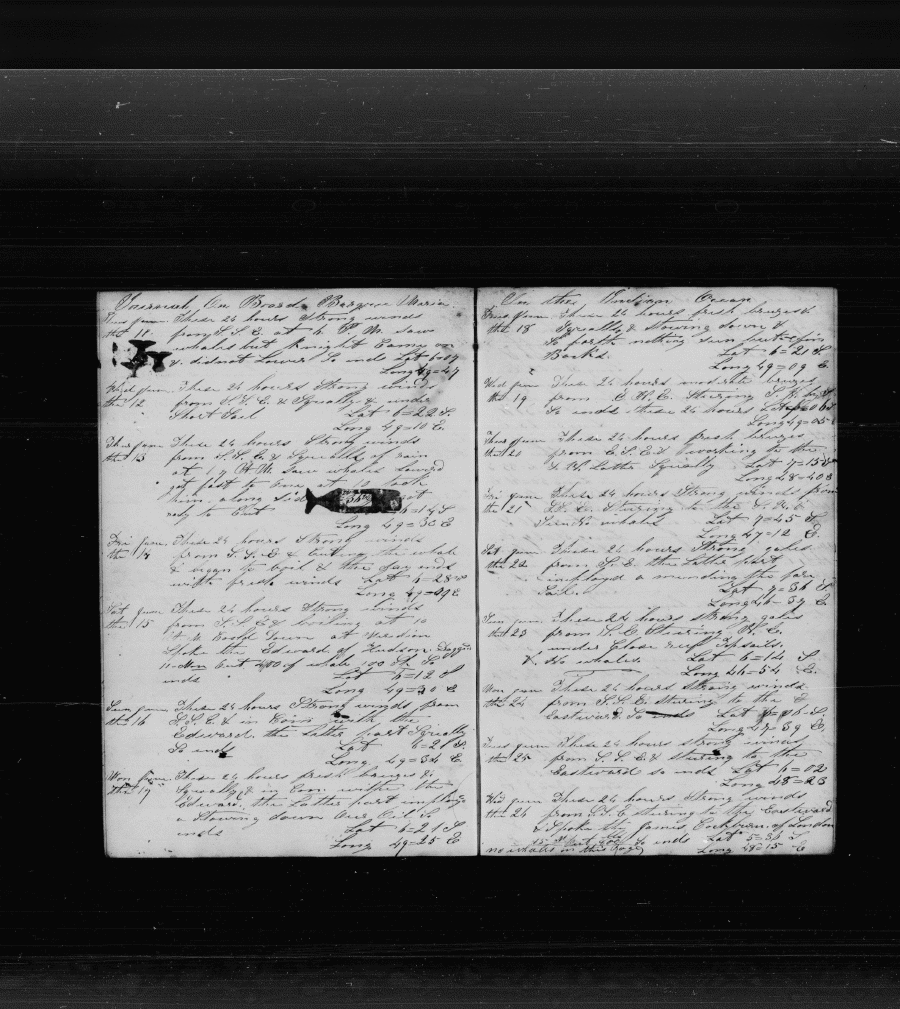 Journal On Board Barque Maria
Tues June These 24 hours strong winds
the 11 from S S E at 6 P M saw
whales but Knight Came on
& did not Lower So ends Lat
Long 49=47
Wed June These 24 hours Strong winds
the 12 from S S E & Squally & under
Short Sail Lat 6=22 S.
Long 49=10 E.
Thurs June These 24 hours Strong winds
the 13 from S.S.E & Squalls of rain
at 1 P M. Saw whales Lowrd
got fast to one at 10 took
him along Side
redy to Cut 6=14 S
Long 49=30 E
Fri June These 24 hours Strong winds
the 14 from S.S.E & cuting the whale
& began to boil & the day ends
with fresh winds Lat 6=28 S
Long 49=29 E
Sat June These 24 hours Strong winds
the 15 from S.S.E & boiling at 10
A M. at Meridian
Spoke the Edward of Hudson. Dagg
11 Mon out 400 of whale 100 Sp. So
ends Lat 6=12 S
Long 49=30 E
Sun June These 24 hours Strong winds from
the 16 S.S.E & in Com with the
Edward. the Latter part Squally
So ends Lat 6=21 S.
Long 49=34 E.
Mon June These 24 hours fresh breezes &
the 17 Squally & in Com with the
Edward, the Latter part imploy
a Stowing down Our Oil So
ends Lat 6=21 S
Long 49=25 E
In the Indian Ocean
Tues June These 24 hours fresh breezes &
the 18 Squally & Stowing down &
So forth nothing Seen but
Backs. Lat 6=21 S
Long 49=09 E.
Wed June These 24 hours moderate breezes
the 19 from Stering S.W. by
So ends these 24 hours Lat
Long 49=05
Thurs June These 24 hours fresh breezes
the 20 from E.S.E & working to the
& W. Latter Squally Lat 7=15
Long 48=40 E
Fri June These 24 hours Strong winds from
the 21 Stering to the
whales Lat 7=45 S
Long 47=12 E.
Sat June These 24 hours Strong gales
the 22 from S.E the Latter part
imployd a mending the fore
Sail. Lat 7=36 S.
Long 46=37 E
Sun June These 24 hours strong gales
the 23 from S.E Stearing
under Close reef Topsails.
& No whales. Lat 6=14 S
Long 46=54 E.
Mon June These 24 hours Strong winds
the 24 from S.S.E stering to the E
Eastward So ends Lat
Long 47=39 E.
Tues June These 24 hours strong winds
the 25 from S.S.E & stering to the
Eastward so ends Lat 6=02
Long 48=23
Wed June These 24 hours Strong winds
the 26 from S.S.E stering to the Eastward
& Spoke the James Cockburn of London
So ends Lat 5=36 S
no whales in this Gage Long 48=15 E